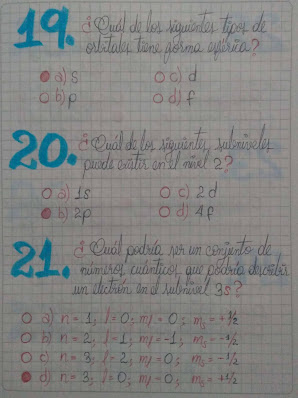 19. ¿Cuál de los siguientes tipos de
orbitales tiene forma esférica?
a) s
c) d
b) p
d) f
20. ¿Cuál de los siguientes subniveles
puede existir en el nivel 2?
a) 1s
c) 2d
b) 2p
d) 4f
21. ¿Cuál podría ser un conjunto de
números cuánticos que podría describir
un electrón en el subnivel 3s?
a) n = 1; l = 0; ml = 0; ms = +1/2
b) n = 2; l = 1; ml = -1; ms = -1/2
c) n = 3; l = 2; ml = 0; ms = -1/2
d) n = 3; l = 0; ml = 0; ms = +1/2